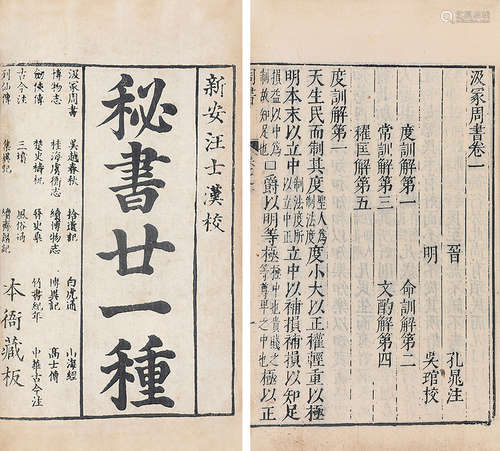 新安汪士漢校
秘書廿一種
汲冢周書 吳越春秋 拾遺記 白虎通 山海經
博物志 桂海虞衡志 續博物志 博異記 高士傳
劍俠傳 楚史檮杌 晉史乘 竹書紀年 中華古今注
古今注 三墳 風俗通
列仙傳 集異記 續齊諧記
本衙藏板
汲冢周書卷一
晉 孔晁注
明 吳琯校
度訓解第一 命訓解第二
常訓解第三 文酌解第四
糴匡解第五
度訓解第一
天生民而制其度聖人為制法度度小大以正權輕重以極
明本末以立中制法度所以立中正立中以補損補損以知足
損益以中為制故知足也□爵以明等極極中也貴賤之等尊卑之中也極以正